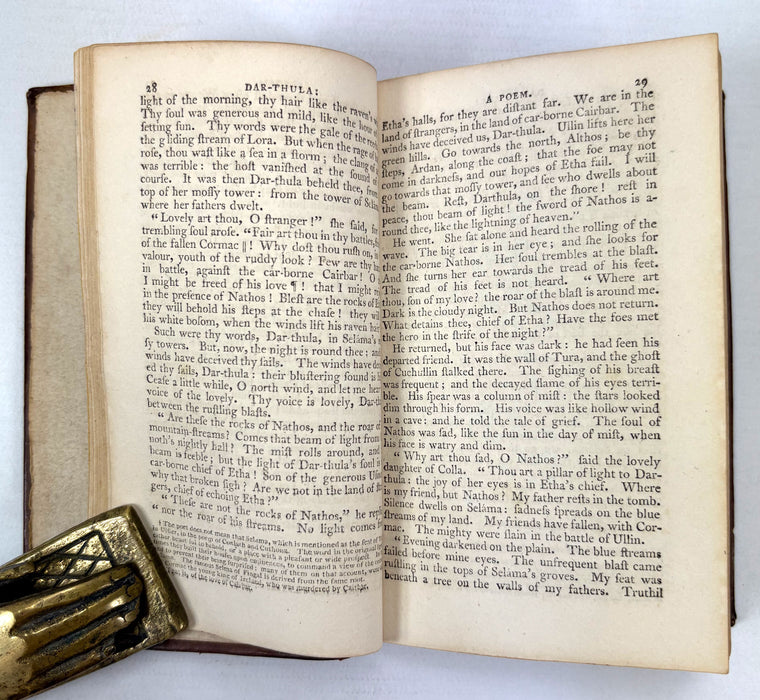 28
DAR-THULA:
light of the morning, thy hair like the raven's
Thy ſoul was generous and mild, like the hour of
ſetting ſun. Thy words were the gale of the reeds,
the gliding ſtream of Lora. But when the rage of
roſe, thou waſt like a ſea in a ſtorm; the clang of
was terrible: the hoſt vaniſhed at the ſound of
courſe. It was then Dar-thula beheld thee, from
top of her moſſy tower: from the tower of Seláma,
where her fathers dwelt.
"Lovely art thou, O ſtranger!" ſhe ſaid, for
trembling ſoul aroſe. "Fair art thou in thy battles,
of the fallen Cormac ‖! Why doſt thou ruſh on, in
valour, youth of the ruddy look? Few are thy
in battle, againſt the car-borne Cairbar! O,
I might be freed of his love ¶! that I might
in the preſence of Nathos! Bleſt are the rocks of
they will behold his ſteps at the chaſe! they will
his white boſom, when the winds lift his raven hair
Such were thy words, Dar-thula, in Seláma's
ſy towers. But, now, the night is round thee; and
winds have deceived thy ſails. The winds have
ed thy ſails, Dar-thula: their bluſtering ſound is
Ceaſe a little while, O north wind, and let me hear
voice of the lovely. Thy voice is lovely, Dar-
between the ruſtling blaſts.
"Are theſe the rocks of Nathos, and the roar of
mountain-ſtreams? Comes that beam of light from
noth's nightly hall? The miſt rolls around, and
beam is feeble; but the light of Dar-thula's ſoul is
car-borne chief of Etha! Son of the generous
why that broken ſigh? Are we not in the land of
gers, chief of echoing Etha?"
"Theſe are not the rocks of Nathos," he
"nor the roar of his ſtreams. No light comes
‡ The poet does not mean that Seláma, which is mentioned as the ſeat of
in Ulſter, in the poem of Conlath and Cuthona. The word in the original
either beautiful to behold, or a place with a pleaſant or wide proſpect.
they built their houſes upon eminences, to command a view of the
to prevent their being ſurpriſed: many of them on that account, were
The famous Selma of Fingal is derived from the ſame root.
the young king of Ireland, who was murdered by Cairbar.
the love of Cairbar.
A POEM.
29
Etha's halls, for they are diſtant far. We are in the
land of ſtrangers, in the land of car-borne Cairbar. The
winds have deceived us, Dar-thula. Ullin lifts here her
green hills. Go towards the north, Althos; be thy
ſteps, Ardan, along the coaſt; that the foe may not
come in darkneſs, and our hopes of Etha fail. I will
go towards that moſſy tower, and ſee who dwells about
the beam. Reſt, Darthula, on the ſhore! reſt in
peace, thou beam of light! the ſword of Nathos is a-
round thee, like the lightning of heaven."
He went. She ſat alone and heard the rolling of the
wave. The big tear is in her eye; and ſhe looks for
the car-borne Nathos. Her ſoul trembles at the blaſt.
And ſhe turns her ear towards the tread of his feet.
The tread of his feet is not heard. "Where art
thou, ſon of my love? the roar of the blaſt is around me.
Dark is the cloudy night. But Nathos does not return.
What detains thee, chief of Etha? Have the foes met
the hero in the ſtrife of the night?"
He returned, but his face was dark: he had ſeen his
departed friend. It was the wall of Tura, and the ghoſt
of Cuchullin ſtalked there. The ſighing of his breaſt
was frequent; and the decayed flame of his eyes terri-
ble. His ſpear was a column of miſt: the ſtars looked
dim through his form. His voice was like hollow wind
in a cave: and he told the tale of grief. The ſoul of
Nathos was ſad, like the ſun in the day of miſt, when
his face is watry and dim.
"Why art thou ſad, O Nathos?" ſaid the lovely
daughter of Colla. "Thou art a pillar of light to Dar-
thula: the joy of her eyes is in Etha's chief. Where
is my friend, but Nathos? My father reſts in the tomb.
Silence dwells on Seláma: ſadneſs ſpreads on the blue
ſtreams of my land. My friends have fallen, with Cor-
mac. The mighty were ſlain in the battle of Ullin.
"Evening darkened on the plain. The blue ſtreams
failed before mine eyes. The unfrequent blaſt came
ruſtling in the tops of Seláma's groves. My ſeat was
beneath a tree on the walls of my fathers. Truthil